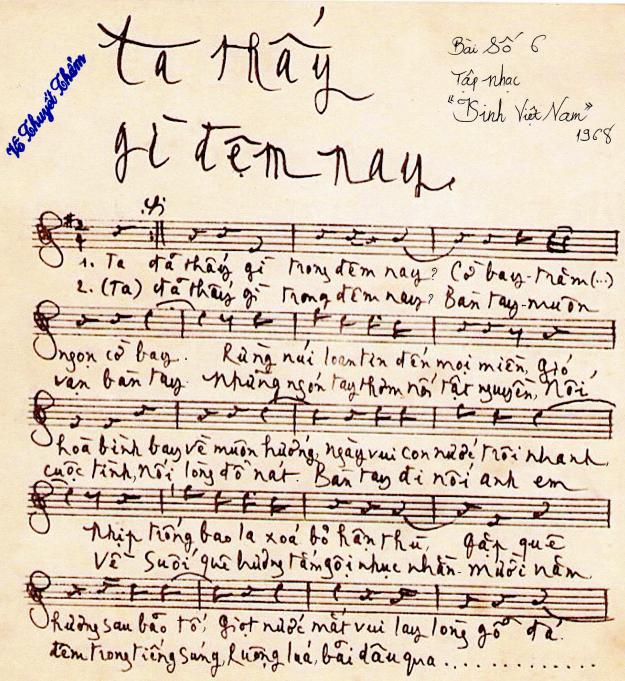 Ta thấy
gì đêm nay
Bài Số 6
Tập nhạc
"Kinh Việt Nam"
1968
Võ Thuyết Thám
1. Ta đã thấy gì trong đêm nay? Cờ bay trăm (...)
2. (Ta) đã thấy gì trong đêm nay? Bàn tay muôn
ngọn cờ bay. Rừng núi loan tin đến mọi miền, gió
vạn bàn tay. Những ngón tay thơm nối tật nguyền, nối
hoà bình bay về muôn hướng, ngày vui con nước trôi nhanh,
cuộc tình, nối lòng đổ nát. Bàn tay đi nối anh em
nhịp trống bao la xoá bỏ hận thù, gặp quê
Về suối quê hương tắm gội nhục nhằn. mười năm
hương sau bão tố, giọt nước mắt vui lay lòng gỗ đá.
đêm trong tiếng súng, Ruộng lúa, bãi dâu qua .............